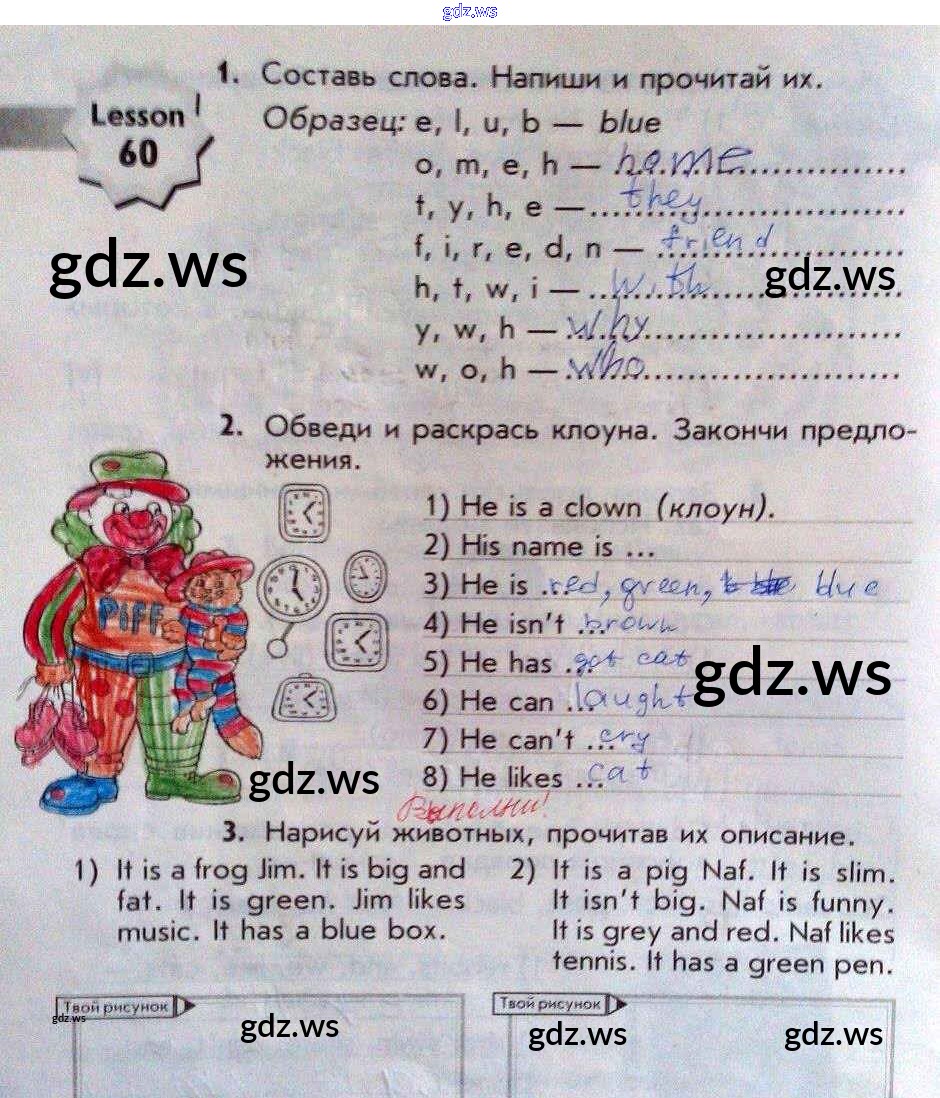 gdz.ws
Lesson
60
1. Составь слова. Напиши и прочитай их.
Образец: e, l, u, b — blue
o, m, e, h — home
t, y, h, e — they
f, i, r, e, d, n — friend
gdz.ws
gdz.ws
h, t, w, i — with
y, w, h — why
w, o, h — who
2. Обведи и раскрась клоуна. Закончи предло-
жения.
PIFF
1) He is a clown (клоун).
2) His name is ...
3) He is red, green, blue
4) He isn't brown
5) He has got cat
gdz.ws
6) He can laught
7) He can't ... cry
8) He likes ... cat
gdz.ws
Выполни!
3. Нарисуй животных, прочитав их описание.
1) It is a frog Jim. It is big and
fat. It is green. Jim likes
music. It has a blue box.
2) It is a pig Naf. It is slim.
It isn't big. Naf is funny.
It is grey and red. Naf likes
tennis. It has a green pen.
Твой рисунок
gdz.ws
gdz.ws
Твой рисунок
gdz.ws
gdz.ws